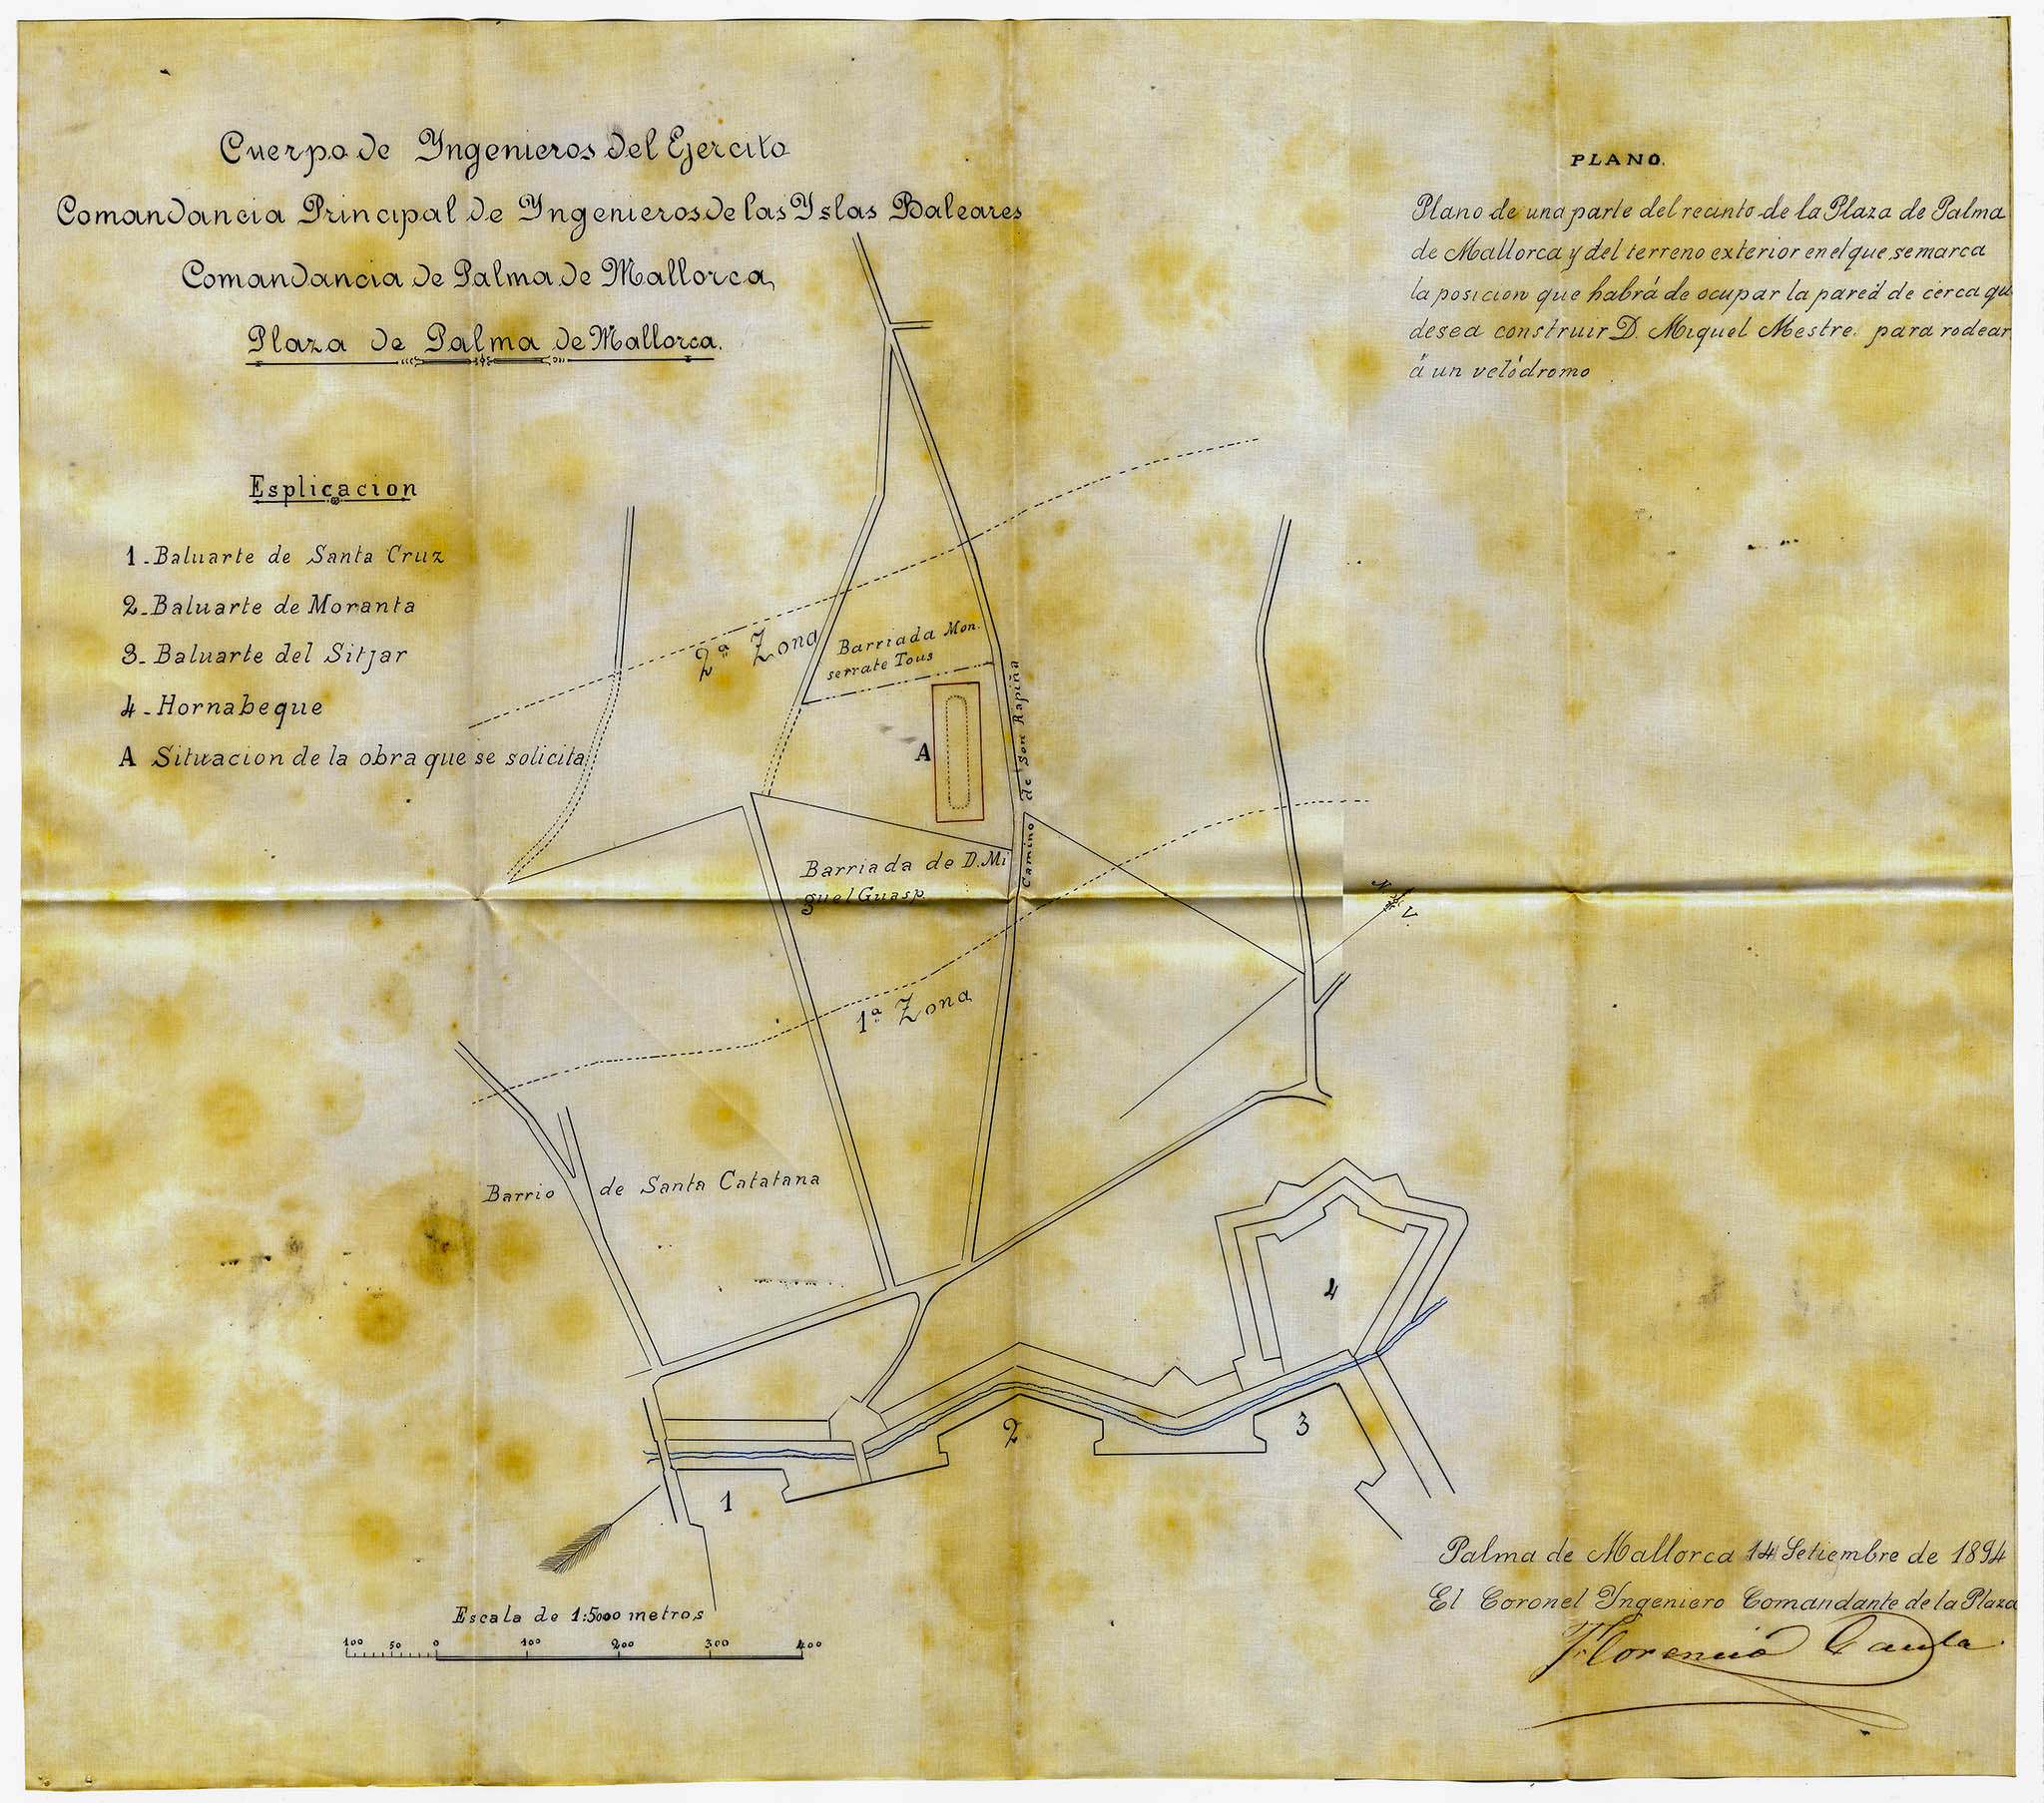 Cuerpo de Yngenieros del Ejercito
Comandancia Principal de Yngenieros de las Yslas Baleares
Comandancia de Palma de Mallorca,
Plaza de Palma de Mallorca.
PLANO.
Plano de una parte del recinto de la Plaza de Palma
de Mallorca y del terreno exterior en el que se marca
la posicion que habrá de ocupar la pared de cerca que
desea construir D. Miquel Mestre. para rodear
á un velódromo
Esplicacion
1 - Baluarte de Santa Cruz
2 - Baluarte de Moranta
3 - Baluarte del Sitjar
4 - Hornabeque
A Situacion de la obra que se solicita
2ª Zona
Barriada Mon.
serrate Tous
A
Camino de Son Rapiña
Barriada de D. Mi
guel Guasp.
N. V.
1ª Zona
Barrio de Santa Catatana
4
2
3
1
Escala de 1:5000 metros
100 50 0 100 200 300 400
Palma de Mallorca 14 Setiembre de 1894
El Coronel Yngeniero Comandante de la Plaza
Florencio